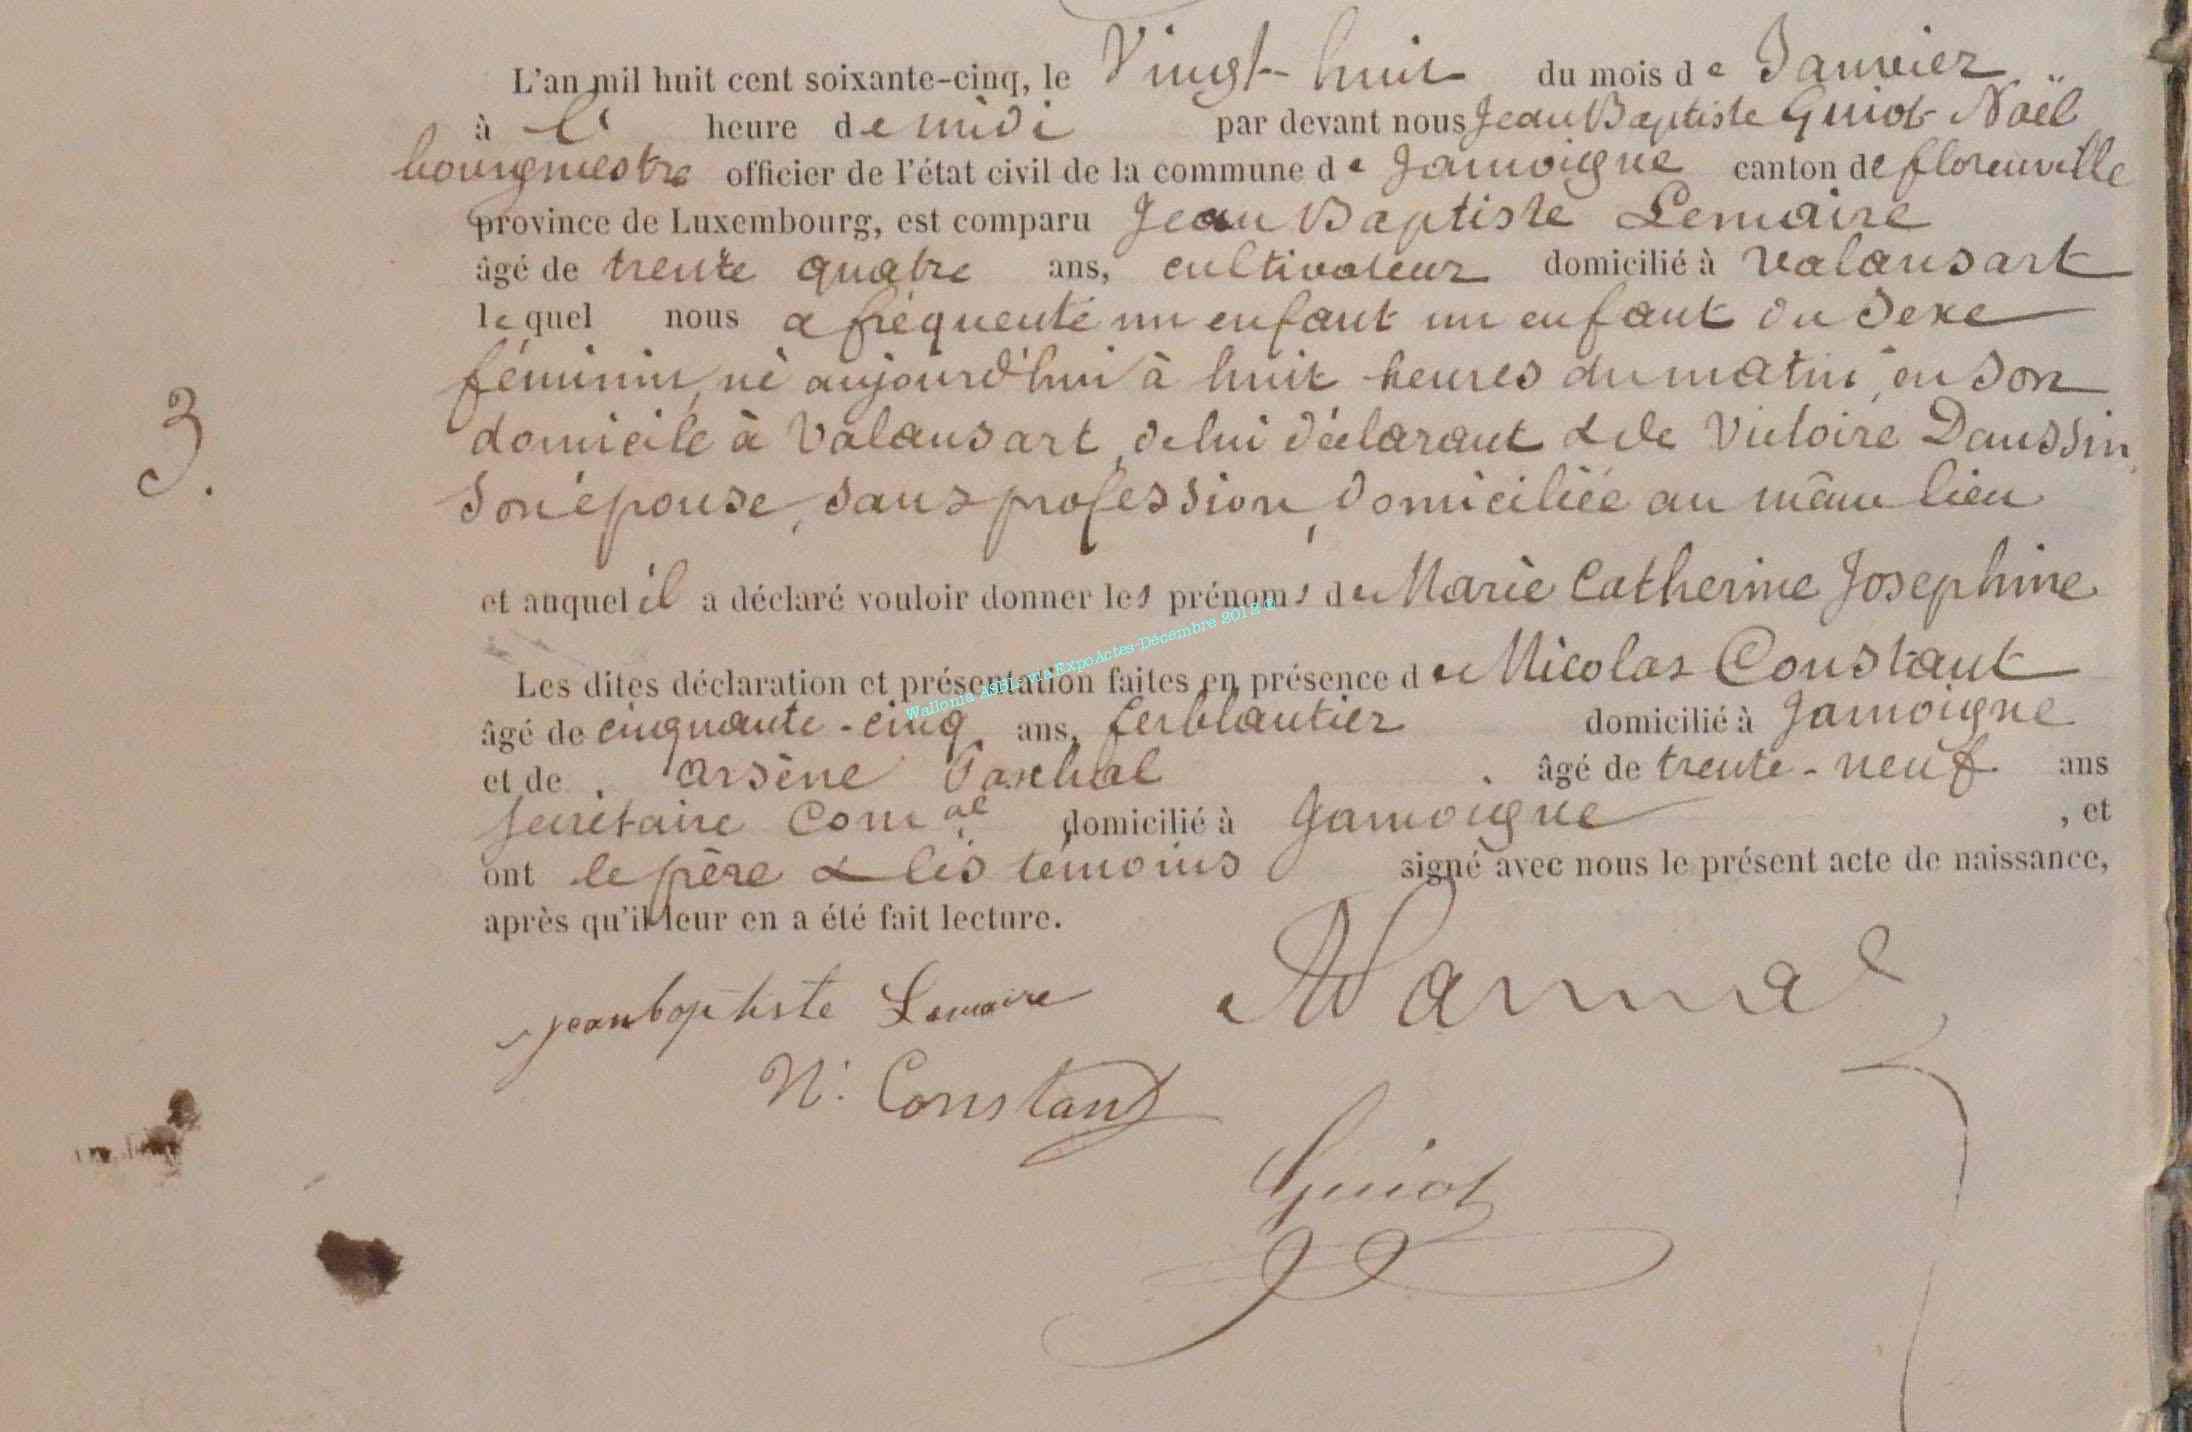 L'an mil huit cent soixante-cinq, le Vingt-huit du mois de Janvier
à l' heure de midi par devant nous Jean Baptiste Guiot-Noël
bourgmestre officier de l'état civil de la commune de Jamoigne canton de florenville
province de Luxembourg, est comparu Jean Baptiste Lemaire
âgé de trente quatre ans, cultivateur domicilié à Valansart
lequel nous a fréquenté un enfant un enfant du sexe
féminin, né aujourd'hui à huit heures du matin, en son
domicile à Valansart, de lui déclarant & de Victoire Daussin
3.
son épouse, sans profession, domiciliée au même lieu
et auquel il a déclaré vouloir donner les prénoms de Marie Catherine Josephine
Wallonia ASBL via ExpoActes-Décembre 2012
Les dites déclaration et présentation faites en présence de Nicolas Constant
âgé de cinquante-cinq ans, ferblantier domicilié à Jamoigne
et de arsène âgé de trente-neuf ans
secrétaire Com.al domicilié à Jamoigne, et
ont le père & les témoins signé avec nous le présent acte de naissance,
après qu'il leur en a été fait lecture.
jean baptiste Lemaire
N. Constant
Guiot